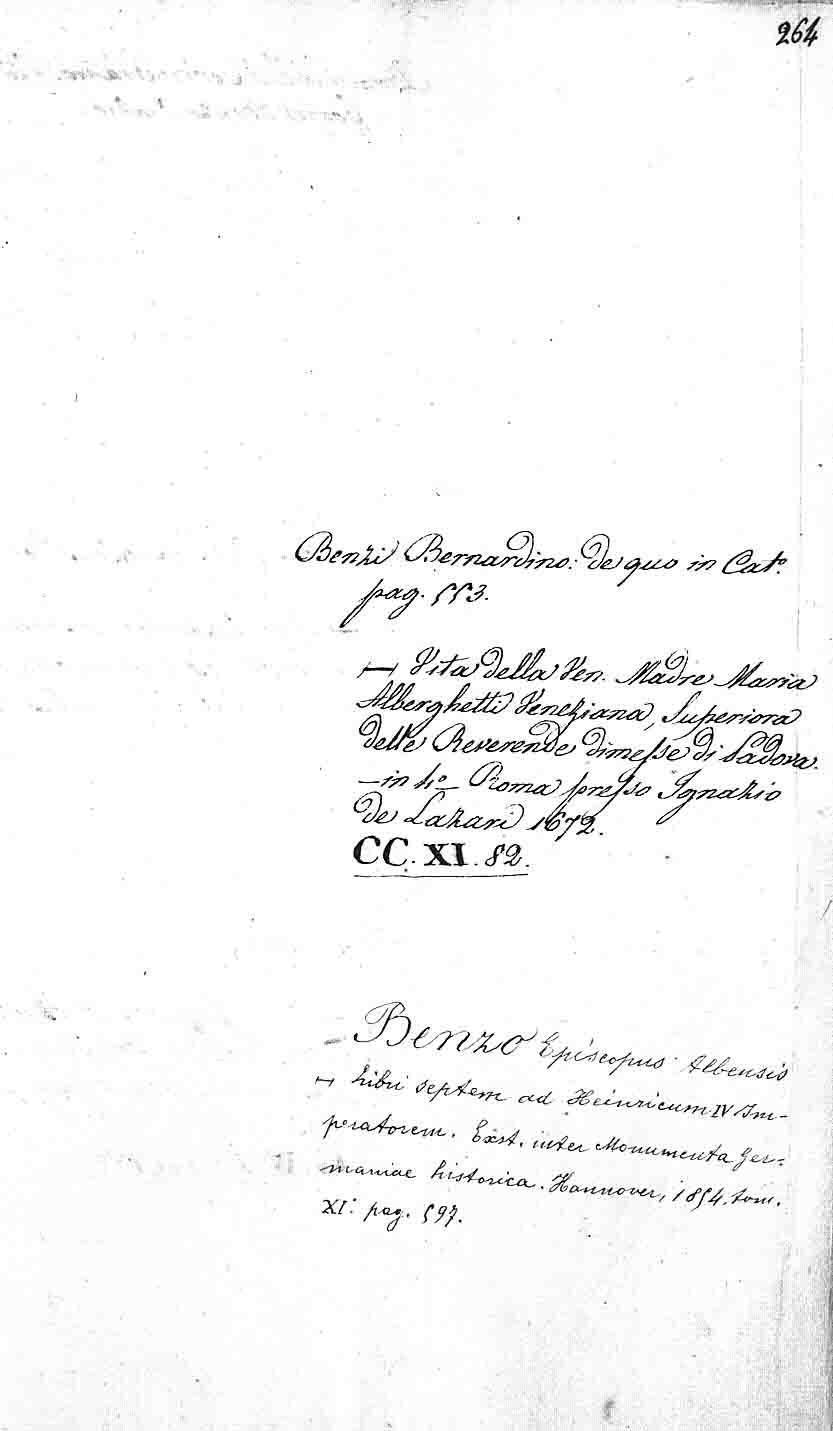 264
Benzi Bernardino: de quo in Cat.º
pag. 553.
⊢⊣ Vita della Ven. Madre Maria
Alberghetti Veneziana, Superiora
delle Reverende dimesse di Padova.
– in 4.º Roma presso Ignazio
de Lazari 1672.
CC. XI. 82.
Benzo Episcopus Albensis
⊢⊣ Libri septem ad Heinricum IV Im-
peratorem. Exst. inter Monumenta Ger-
maniae historica. Hannover, 1854. tom.
XI. pag. 597.